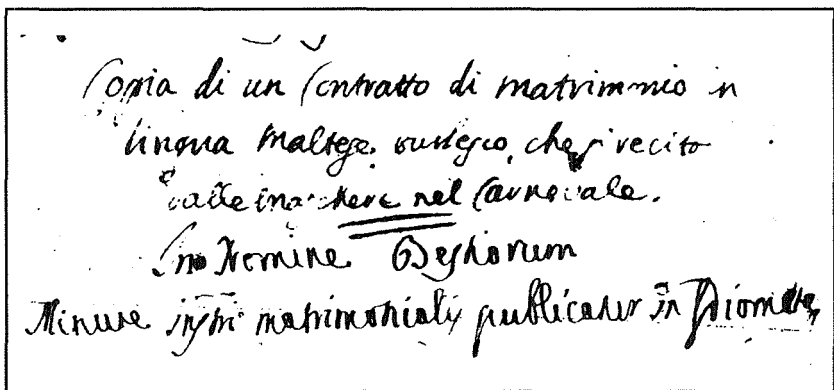 Copia di un Contratto di matrimonio in
lingua Maltese, burlesco, che si recitò
dalle maschere nel Carnovale.
In Nomine Bestiorum
Minute matrimonialis publicatur in Idiomate